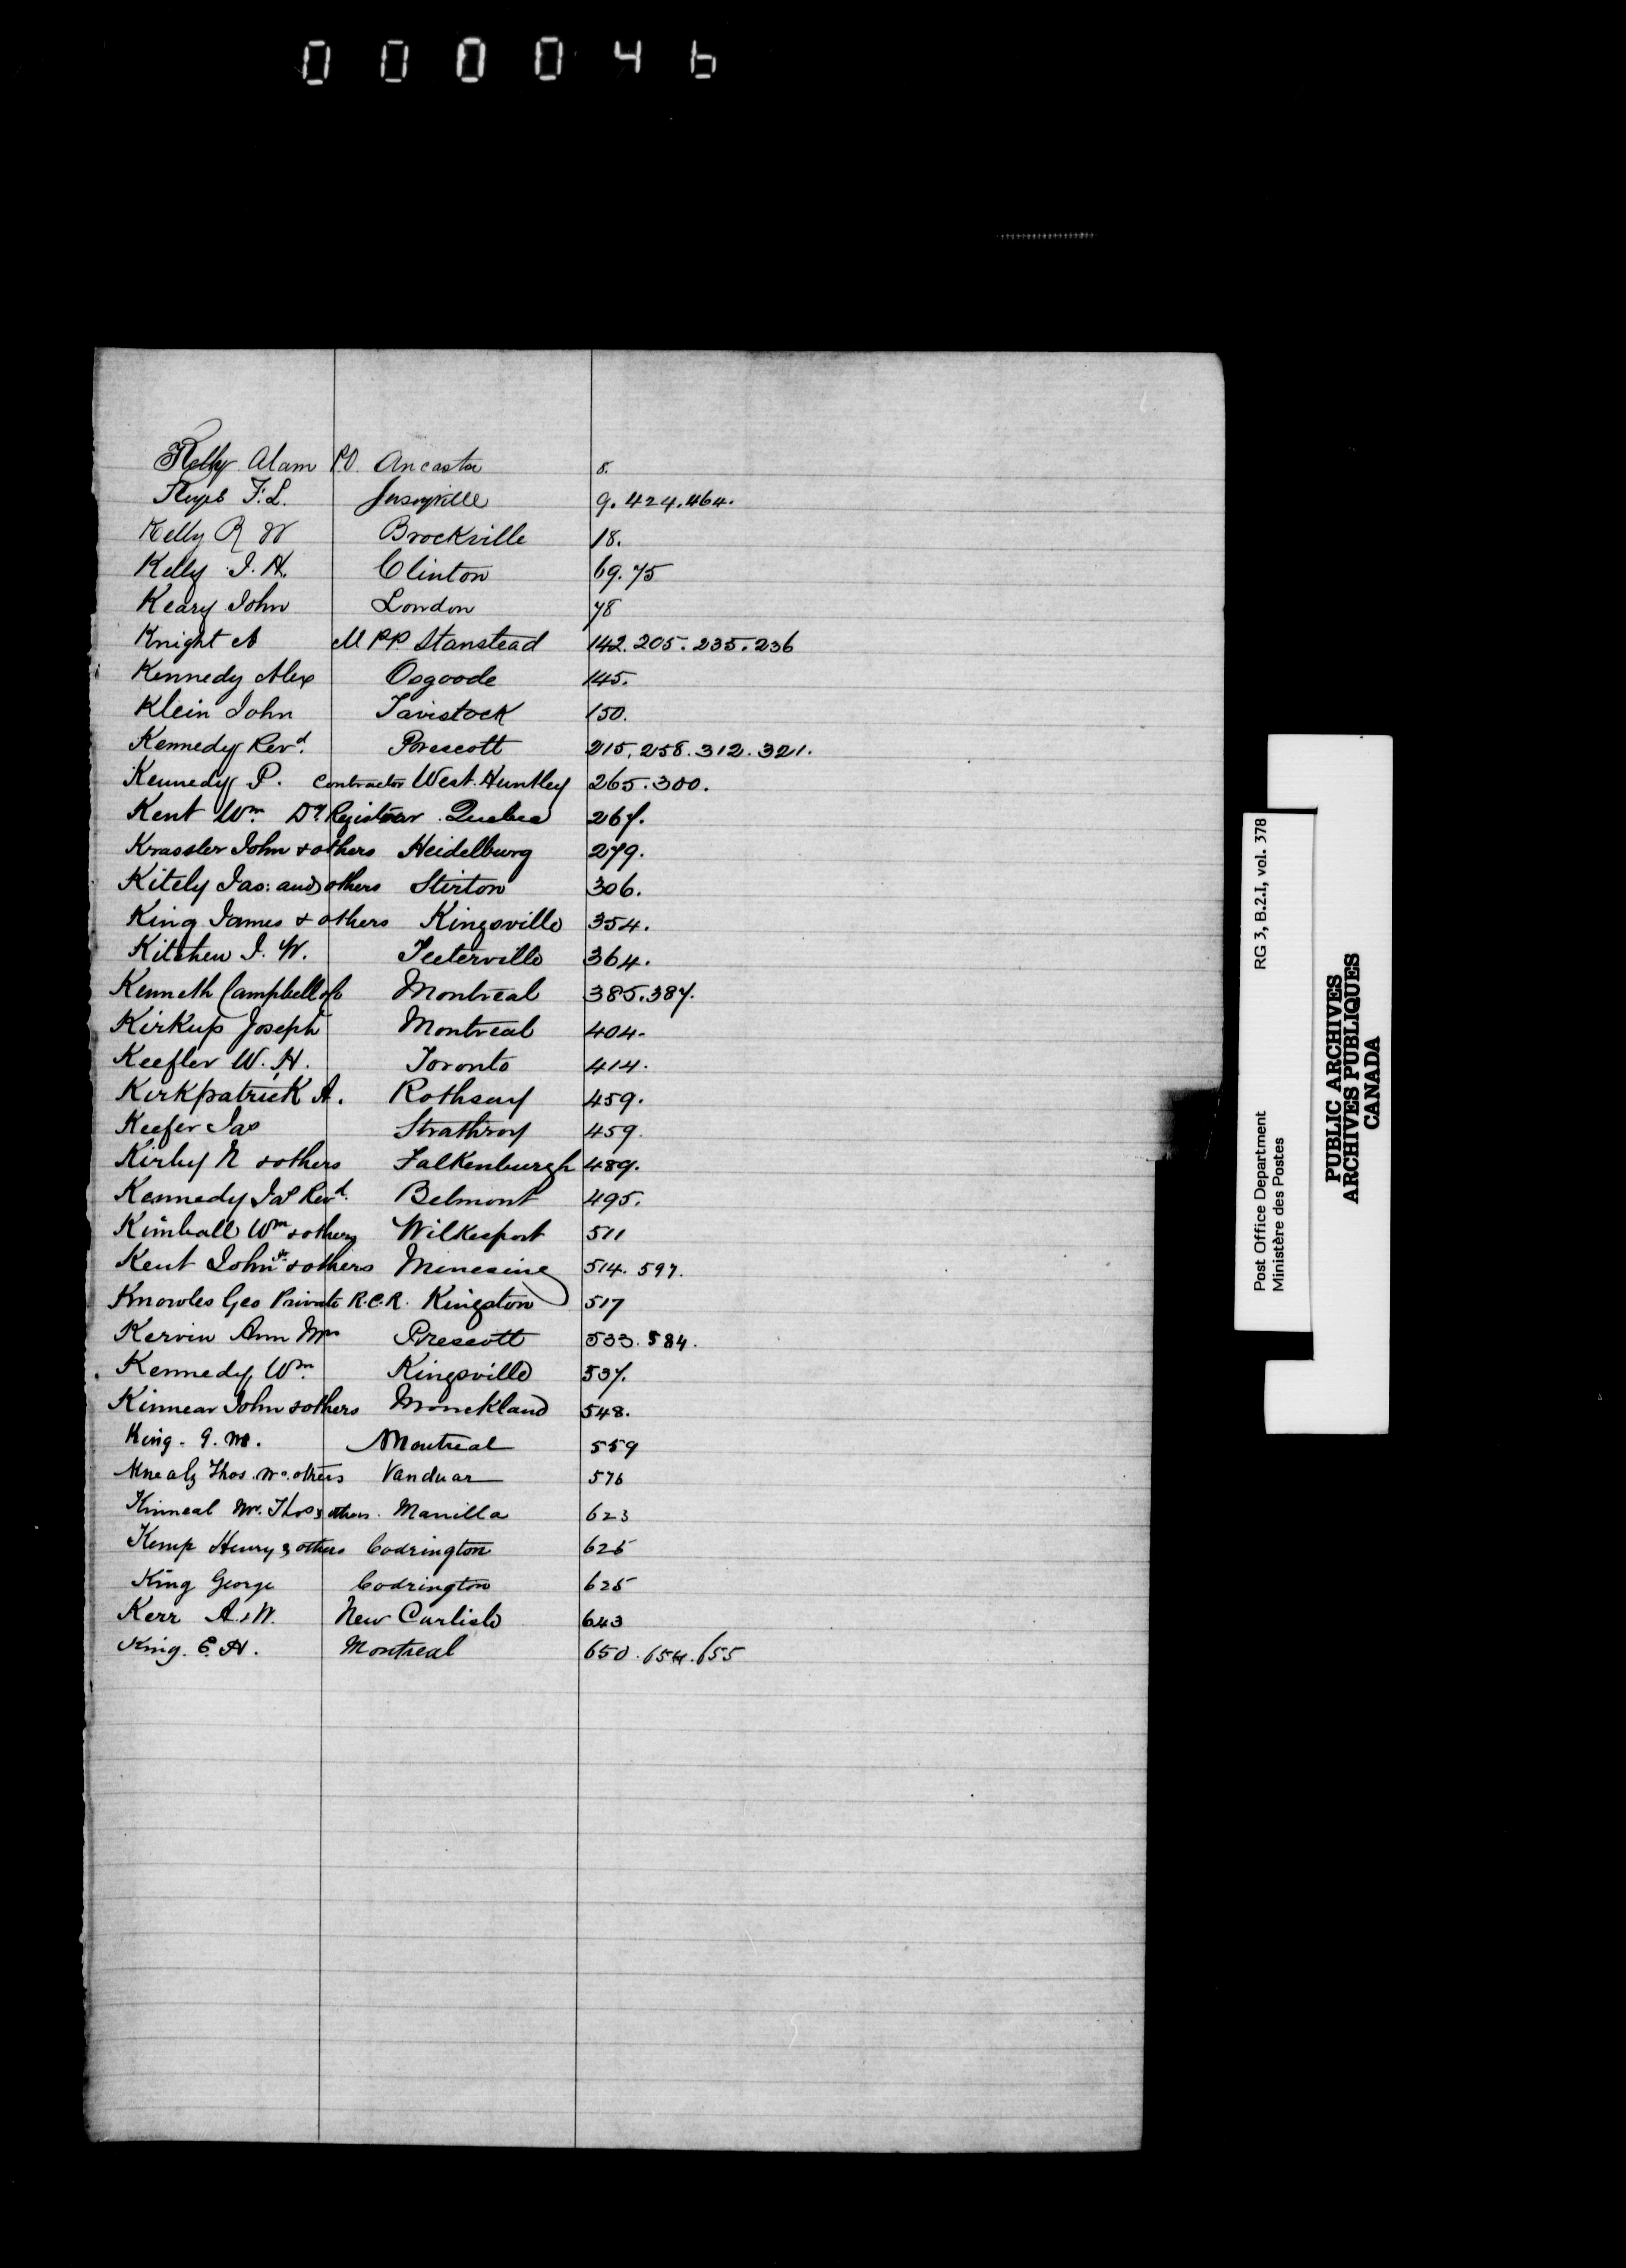 000046
Kelly Alam P.O. Ancaster 8.
F. L. Jerseyville 9. 424. 464.
Kelly R W Brockville 18.
Kelly J. H. Clinton 69. 75
Keary John London 78
Knight A M P.P. Stanstead 142. 205. 235. 236
Kennedy Alex Osgoode 145.
Klein John Tavistock 150.
Kennedy Revd. Prescott 215. 258. 312. 321.
Kennedy P. Contractor West Huntley 265. 300.
Kent Wm. Dy. Registrar Quebec 267.
Krassler John & others Heidelburg 279.
Kitely Jas: and others Stirton 306.
King James & others Kingsville 354.
Kitchen J. W. Teeterville 364.
Kenneth Campbell & Co Montreal 385. 387.
Kirkup Joseph Montreal 404.
Keefler W. H. Toronto 414.
Kirkpatrick A. Rothsay 459.
Keefer Jas Strathroy 459.
Kirby N & others Falkenburgh 489.
Kennedy Jas Revd. Belmont 495.
Kimball Wm & others Wilkesport 511
Kent John Sr. & others Minesing 514. 597.
Knowles Geo Private R.C.R. Kingston 517
Kervin Ann Mrs Prescott 533. 584.
Kennedy Wm. Kingsville 537.
Kinnear John & others Monckland 548.
King. G. M. Montreal 559
Thos. others Vanduar 576
Kinneal Mr. Thos & others. Manilla 623
Kemp Henry & others Codrington 625
King George Codrington 625
Kerr A. & W. New Carlisle 643
King. E. H. Montreal 650. 654. 655
RG 3, B.2.I, vol. 378
Post Office Department
Ministère des Postes
PUBLIC ARCHIVES
ARCHIVES PUBLIQUES
CANADA